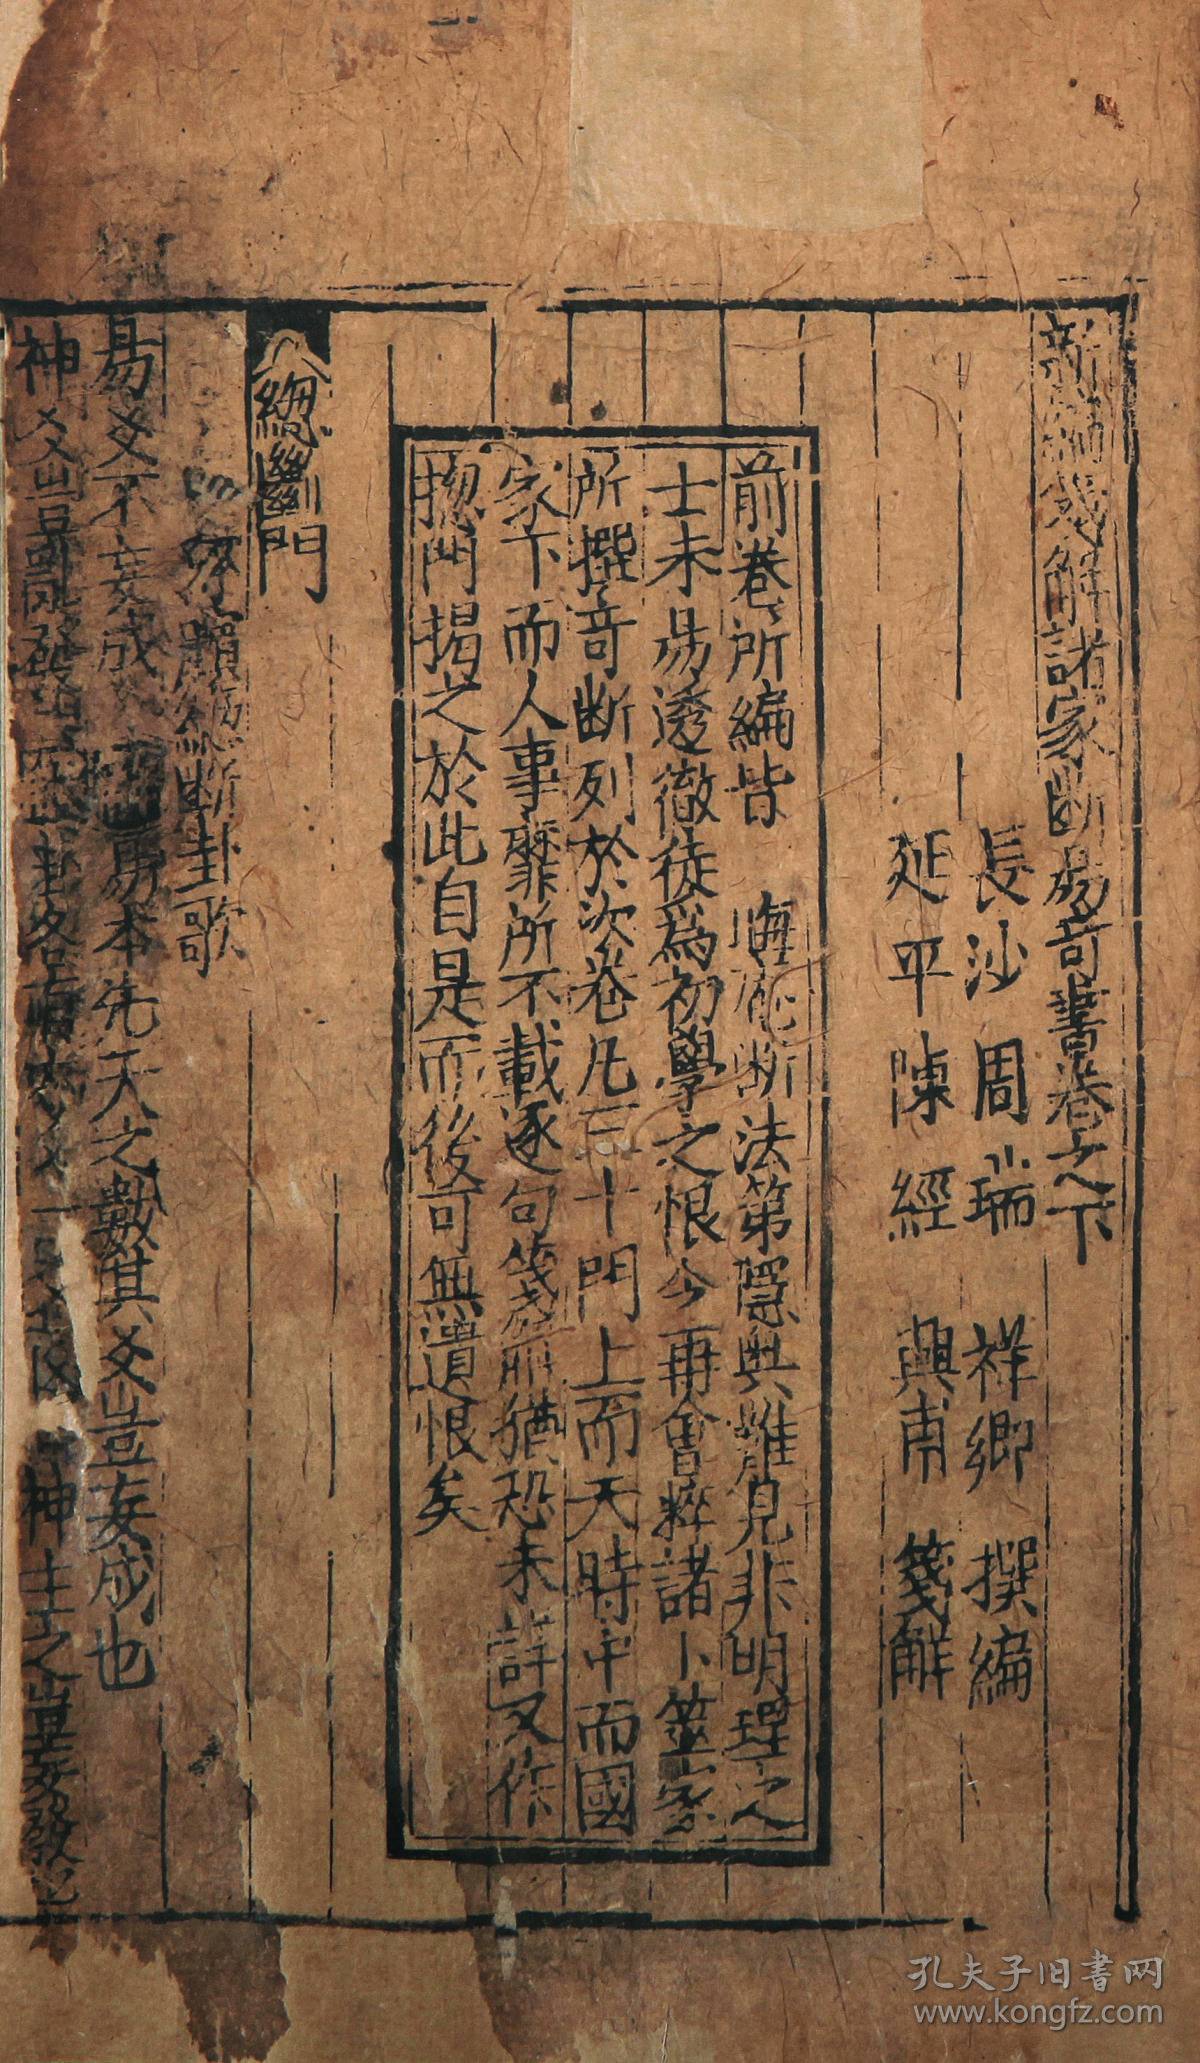 新編箋解諸家断易竒書卷之下
長沙周瑞祥卿撰編
延平陳經興甫箋解
前卷所編皆 晦菴断法第隱奥难見非明理之
士未易透徹徒為初學之恨今再會粹諸卜筮家
所撰竒断列於次卷凡三十門上而天時中而國
家下而人事靡所不載逐句箋觧猶恐未詳又作
揔門揭之於此自是而後可無遺恨矣
總斷門
断卦歌
易爻不妄成 易本先天之數其爻豈妄成也
神爻豈亂發 神主之豈妄發
孔夫子旧書网
www.kongfz.com